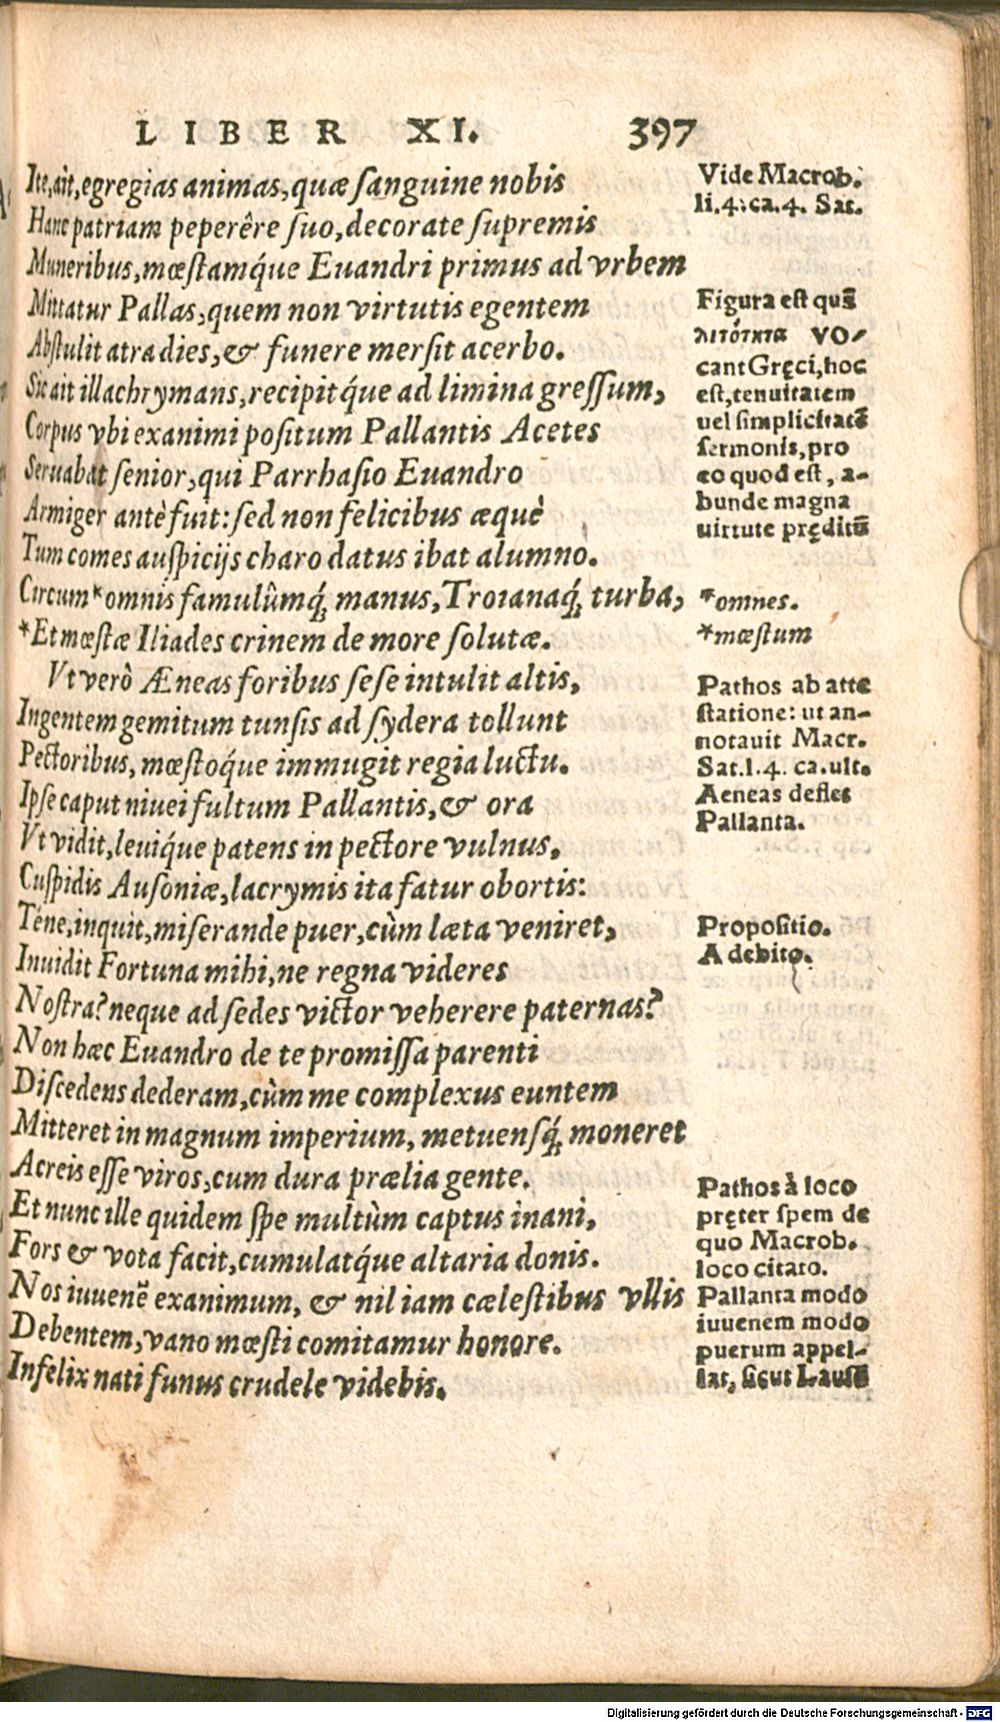 LIBER XI. 397
Ite, ait, egregias animas, quæ ſanguine nobis
Hanc patriam peperêre ſuo, decorate ſupremis
Muneribus, mœſtamq́ue Euandri primus ad vrbem
Mittatur Pallas, quem non virtutis egentem
Abſtulit atra dies, & funere merſit acerbo.
Sic ait illachrymans, recipitq́ue ad limina greſſum,
Corpus vbi exanimi poſitum Pallantis Acetes
Seruabat ſenior, qui Parrhaſio Euandro
Armiger antè fuit: ſed non felicibus æquè
Tum comes auſpicijs charo datus ibat alumno.
Circum *omnis famulûmq́; manus, Troianaq́; turba,
*Et mœſtæ Iliades crinem de more ſolutæ.
Vt verò Æneas foribus ſeſe intulit altis,
Ingentem gemitum tunſis ad ſydera tollunt
Pectoribus, mœſtoq́ue immugit regia luctu.
Ipſe caput niuei fultum Pallantis, & ora
Vt vidit, leuiq́ue patens in pectore vulnus,
Cuſpidis Auſoniæ, lacrymis ita fatur obortis:
Téne, inquit, miſerande puer, cùm læta veniret,
Inuidit Fortuna mihi, ne regna videres
Noſtra? neque ad ſedes victor veherere paternas?
Non hæc Euandro de te promiſſa parenti
Diſcedens dederam, cùm me complexus euntem
Mitteret in magnum imperium, metuenſq́; moneret
Acreis eſſe viros, cum dura prælia gente.
Et nunc ille quidem ſpe multùm captus inani,
Fors & vota facit, cumulatq́ue altaria donis.
Nos iuuenē exanimum, & nil iam cæleſtibus vllis
Debentem, vano mœſti comitamur honore.
Infelix nati funus crudele videbis.
Vide Macrob.
li. 4. ca. 4. Sat.
Figura eſt quā
λιτότητα VO-
cant Gręci, hoc
eſt, tenuitatem
uel ſimplicitatē
ſermonis, pro
eo quod eſt, a-
bunde magna
uirtute pręditū
*omnes.
*mœſtum
Pathos ab atte
ſtatione: ut an-
notauit Macr.
Sat. l. 4. ca. ult.
Aeneas deflet
Pallanta.
Propoſitio.
A debito.
Pathos à loco
pręter ſpem de
quo Macrob.
loco citato.
Pallanta modo
iuuenem modo
puerum appel-
lat, ſicut Lauſū
Digitalisierung gefördert durch die Deutsche Forschungsgemeinschaft - DFG